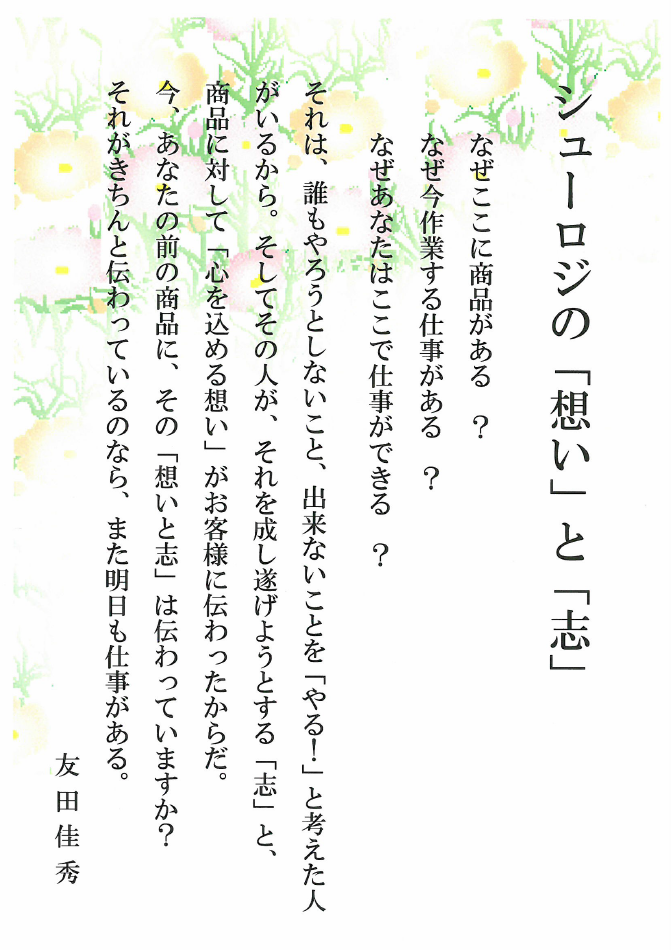 シューロジの「想い」と「志」
なぜここに商品がある　？
なぜ今作業する仕事がある　？
なぜあなたはここで仕事ができる　？
それは、誰もやろうとしないこと、出来ないことを「やる！」と考えた人
がいるから。そしてその人が、それを成し遂げようとする「志」と、
商品に対して「心を込める想い」がお客様に伝わったからだ。
今、あなたの前の商品に、その「想いと志」は伝わっていますか？
それがきちんと伝わっているのなら、また明日も仕事がある。
友田佳秀